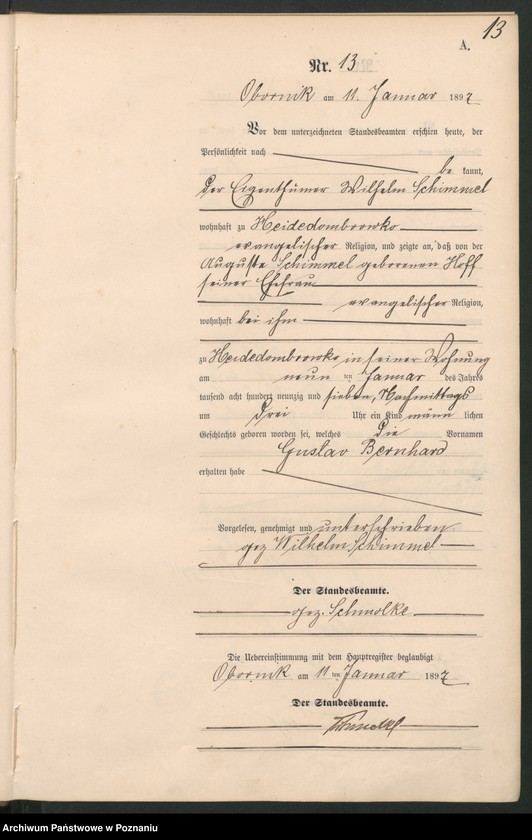 13
A.
Nr. 13
Obornik am 11. Januar 1897
Vor dem unterzeichneten Standesbeamten erschien heute, der
Persönlichkeit nach
be kannt,
der Eigenthümer Wilhelm Schimmel
wohnhaft zu Heidedombrowko
evangelischer Religion, und zeigte an, daß von der
Auguste Schimmel geborenen Hoff
seiner Ehefrau
evangelischer Religion,
wohnhaft bei ihm
zu Heidedombrowko in seiner Wohnung
am neun ten Januar des Jahres
tausend acht hundert neunzig und sieben, Nachmittags
um drei Uhr ein Kind männ lichen
Geschlechts geboren worden sei, welches die Vornamen
Gustav Bernhard
erhalten habe
Vorgelesen, genehmigt und unterschrieben
gez Wilhelm Schimmel
Der Standesbeamte.
gez. Schmolke
Die Uebereinstimmung mit dem Hauptregister beglaubigt
Obornik am 11 ten Januar 1897
Der Standesbeamte.
Archiwum Państwowe w Poznaniu